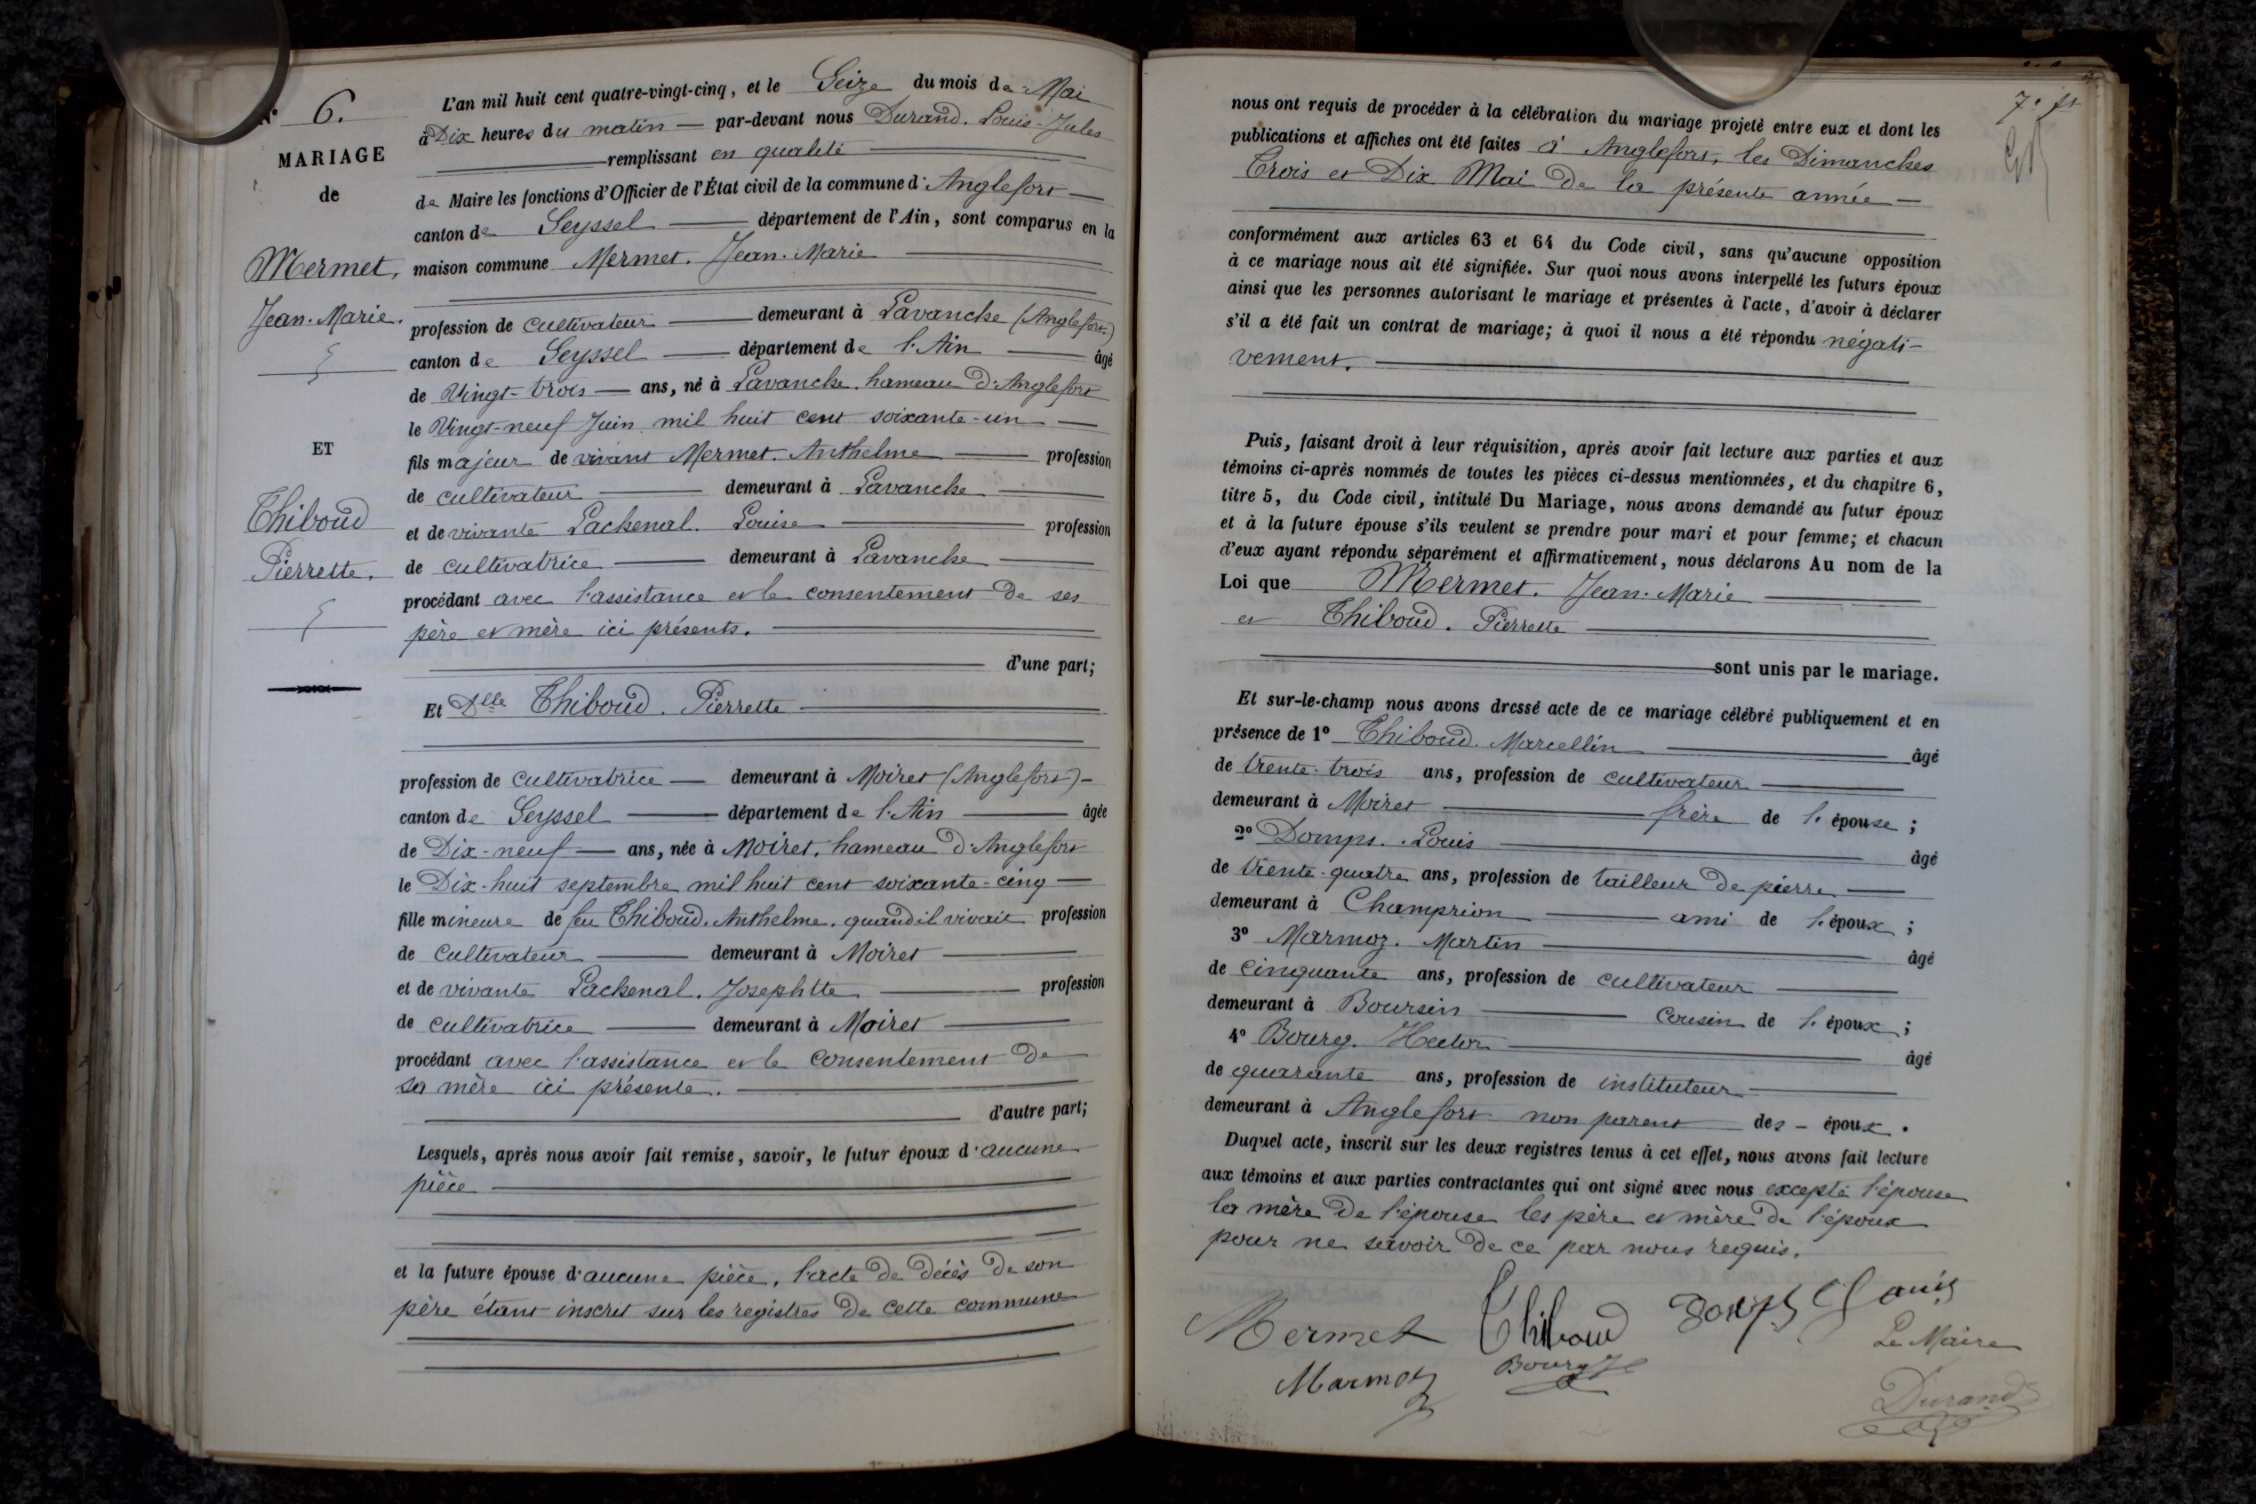 N° 6.
MARIAGE
de
Mermet,
Jean-Marie.
ET
Thiboud
Pierrette.
L'an mil huit cent quatre-vingt-cinq, et le Seize du mois de Mai
à Dix heures du matin par-devant nous Durand. Louis-Jules
remplissant en qualité
de Maire les fonctions d'Officier de l'État civil de la commune d'Anglefort
canton de Seyssel département de l'Ain, sont comparus en la
maison commune Mermet. Jean-Marie
profession de cultivateur demeurant à Lavanche (Anglefort)
canton de Seyssel département de l'Ain âgé
de Vingt-trois ans, né à Lavanche. hameau d'Anglefort
le Vingt-neuf Juin mil huit cent soixante-un
fils majeur de vivant Mermet. Anthelme profession
de cultivateur demeurant à Lavanche
et de vivante Pachenal. Louise profession
de cultivatrice demeurant à Lavanche
procédant avec l'assistance et le consentement de ses
père et mère ici présents.
d'une part;
Et Dlle Thiboud. Pierrette
profession de cultivatrice demeurant à Moiret (Anglefort)
canton de Seyssel département de l'Ain âgée
de Dix-neuf ans, née à Moiret. hameau d'Anglefort
le Dix-huit septembre mil huit cent soixante-cinq
fille mineure de feu Thiboud. Anthelme. quand il vivait profession
de cultivateur demeurant à Moiret
et de vivante Pachenal. Josephtte profession
de cultivatrice demeurant à Moiret
procédant avec l'assistance et le consentement de
sa mère ici présente.
d'autre part;
Lesquels, après nous avoir fait remise, savoir, le futur époux d'aucune
pièce
et la future épouse d'aucune pièce, l'acte de décès de son
père étant inscrit sur les registres de cette commune
nous ont requis de procéder à la célébration du mariage projeté entre eux et dont les
publications et affiches ont été faites à Anglefort, les Dimanches
Trois et Dix Mai de la présente année
conformément aux articles 63 et 64 du Code civil, sans qu'aucune opposition
à ce mariage nous ait été signifiée. Sur quoi nous avons interpellé les futurs époux
ainsi que les personnes autorisant le mariage et présentes à l'acte, d'avoir à déclarer
s'il a été fait un contrat de mariage; à quoi il nous a été répondu négati-
vement.
Puis, faisant droit à leur réquisition, après avoir fait lecture aux parties et aux
témoins ci-après nommés de toutes les pièces ci-dessus mentionnées, et du chapitre 6,
titre 5, du Code civil, intitulé Du Mariage, nous avons demandé au futur époux
et à la future épouse s'ils veulent se prendre pour mari et pour femme; et chacun
d'eux ayant répondu séparément et affirmativement, nous déclarons Au nom de la
Loi que Mermet. Jean-Marie
et Thiboud. Pierrette
sont unis par le mariage.
Et sur-le-champ nous avons dressé acte de ce mariage célébré publiquement et en
présence de 1° Thiboud. Marcellin âgé
de trente-trois ans, profession de cultivateur
demeurant à Moiret frère de l'épouse;
2° Domps. Louis âgé
de trente-quatre ans, profession de tailleur de pierre
demeurant à Champrion ami de l'époux;
3° Marmoz. Martin âgé
de cinquante ans, profession de cultivateur
demeurant à Boursin cousin de l'époux;
4° Bourg. Hector âgé
de quarante ans, profession de instituteur
demeurant à Anglefort non parent des époux.
Duquel acte, inscrit sur les deux registres tenus à cet effet, nous avons fait lecture
aux témoins et aux parties contractantes qui ont signé avec nous excepté l'épouse
la mère de l'épouse les père et mère de l'époux
pour ne savoir de ce par nous requis.
Mermet Thiboud Domps Louis
Le Maire
Marmoz Bourg H
Durand